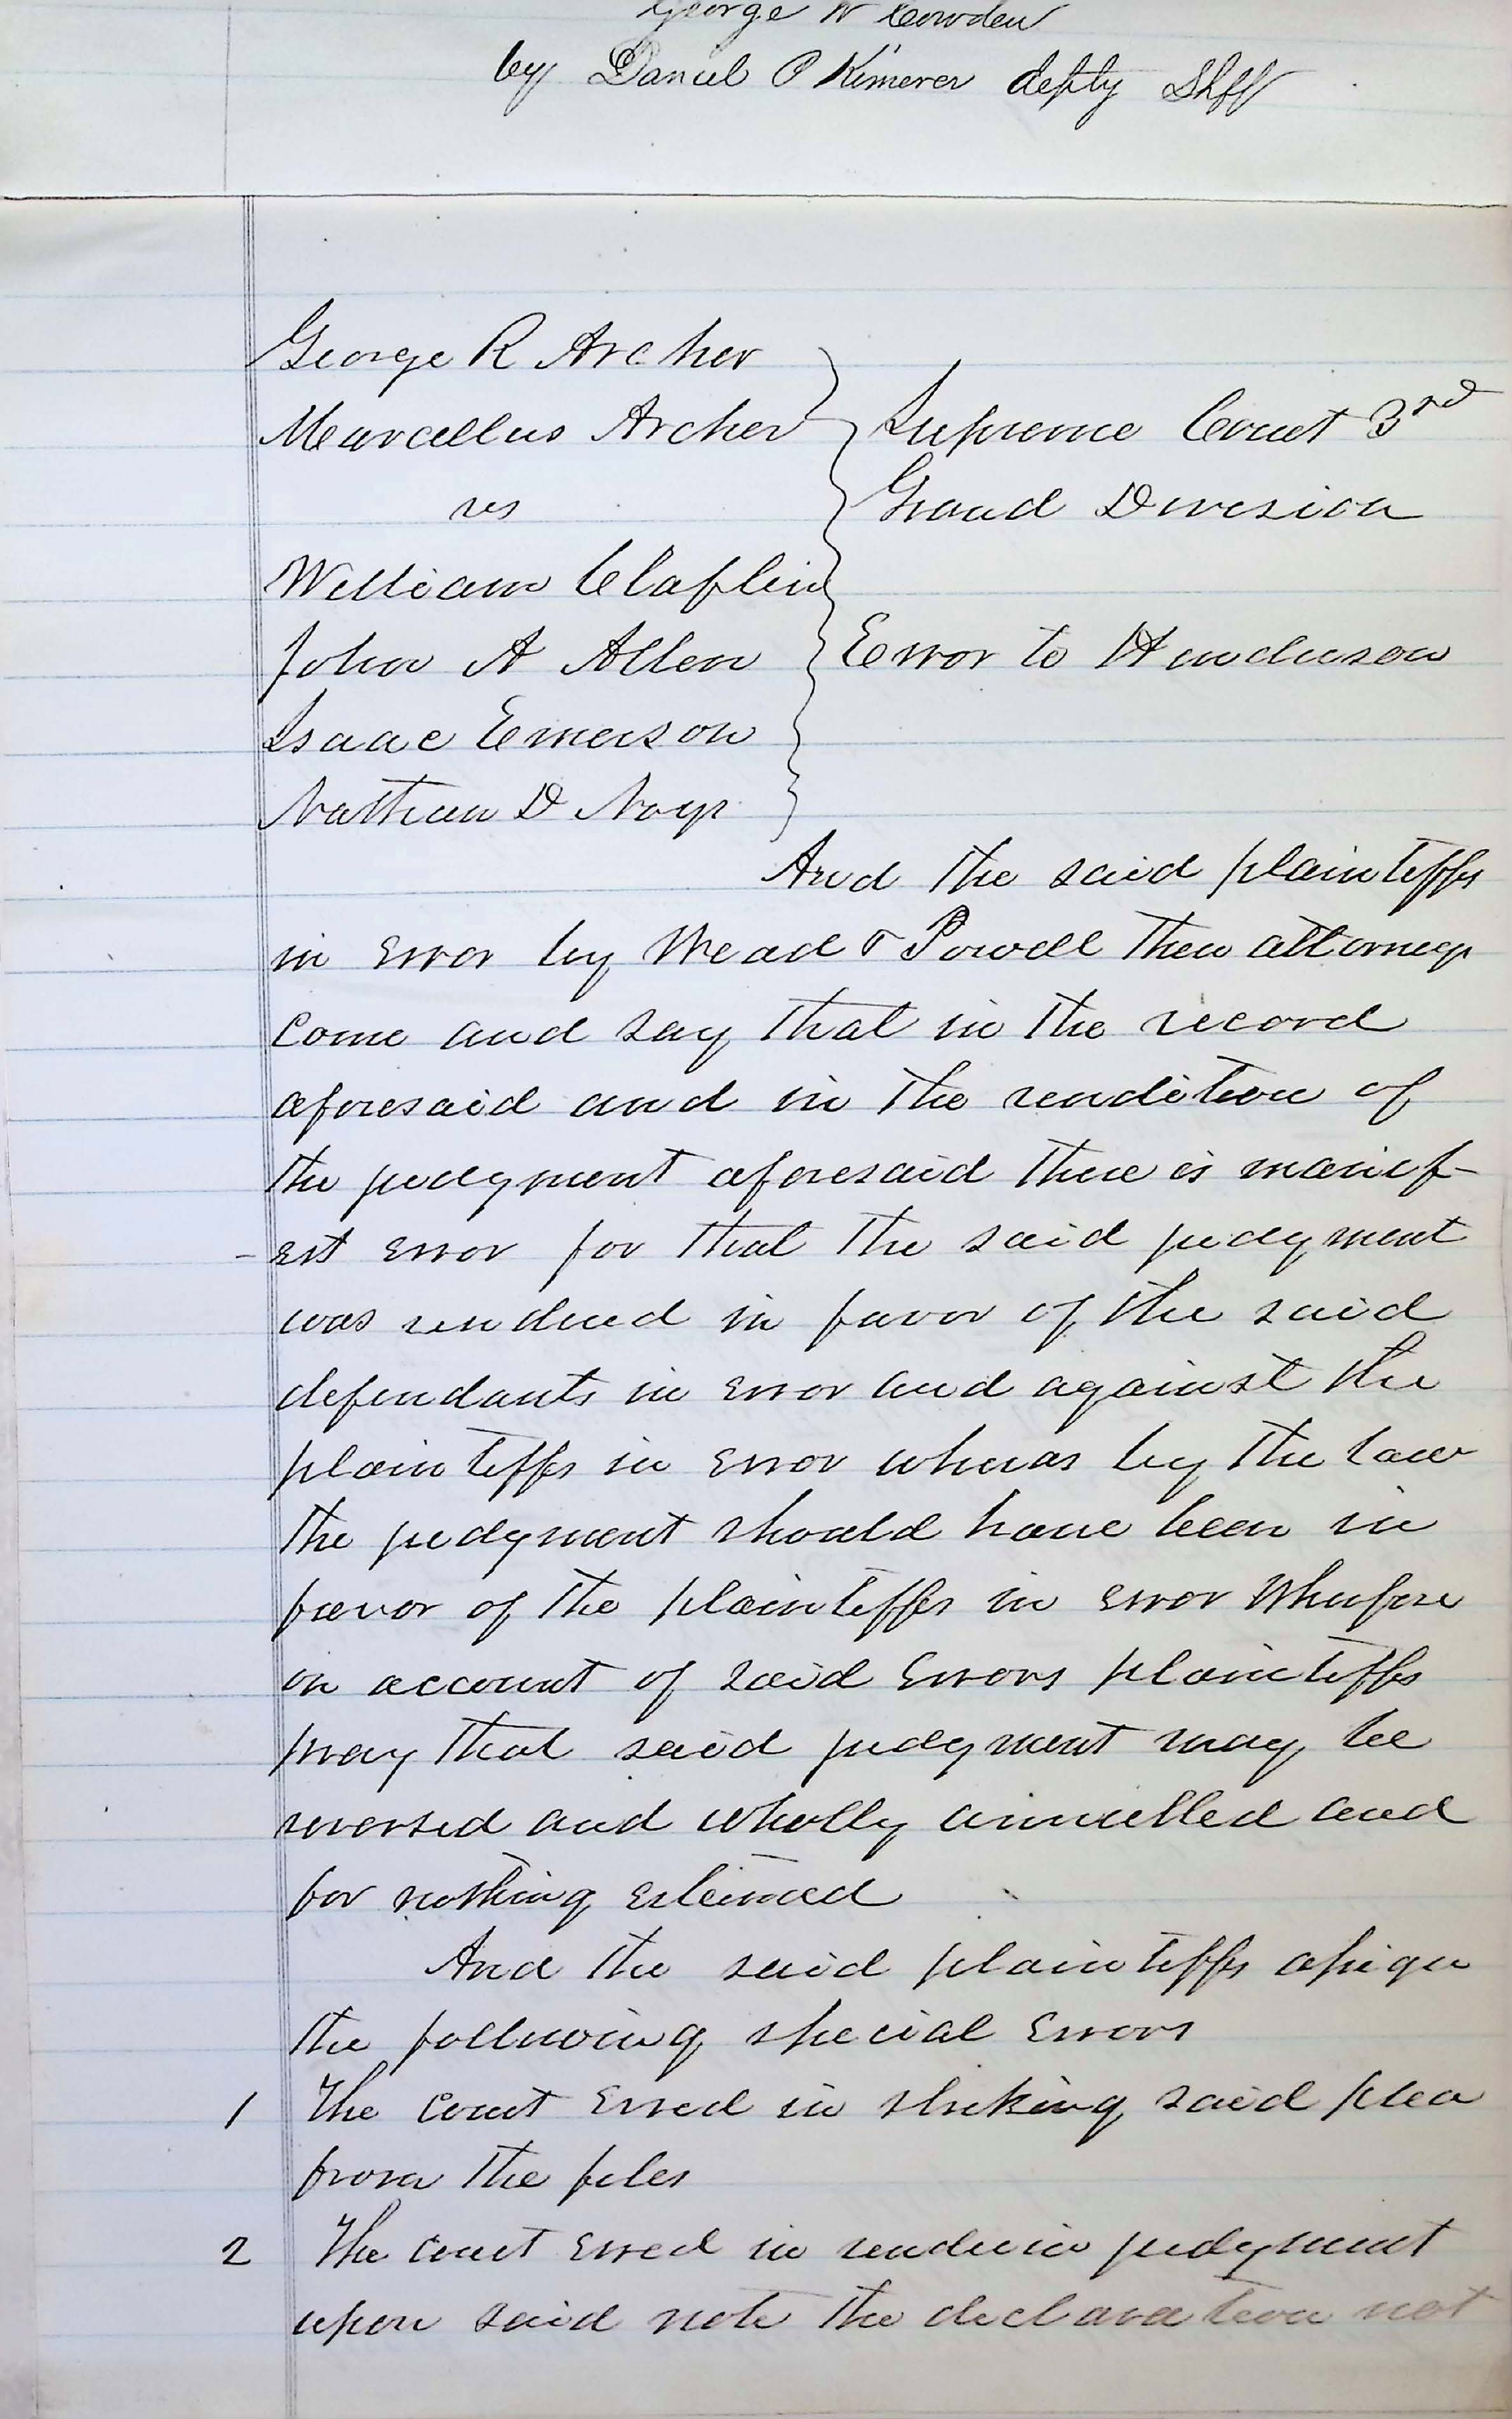 George W Cowden
by Daniel P Kimerer depty Shff
George R Archer
Marcellus Archer
vs
William Claflin
John A Allen
Isaac Emerson
Nathan D Noys
Supreme Court 3rd
Grand Division
Error to Henderson
And the said plaintiffs
in error by Mead & Powell their attorneys
come and say that in the record
aforesaid and in the rendition of
the judgment aforesaid there is manif-
-est error for that the said judgment
was rendered in favor of the said
defendants in error and against the
plaintiffs in error whereas by the law
the judgment should have been in
favor of the plaintiffs in error Wherefore
on account of said Errors plaintiffs
pray that said judgment may be
reversed and wholly annulled and
for nothing esteemed
And the said plaintiffs assign
the following special Errors
1 The Court Erred in striking said plea
from the files
2 The Court Erred in renderin judgment
upon said note the declaration not